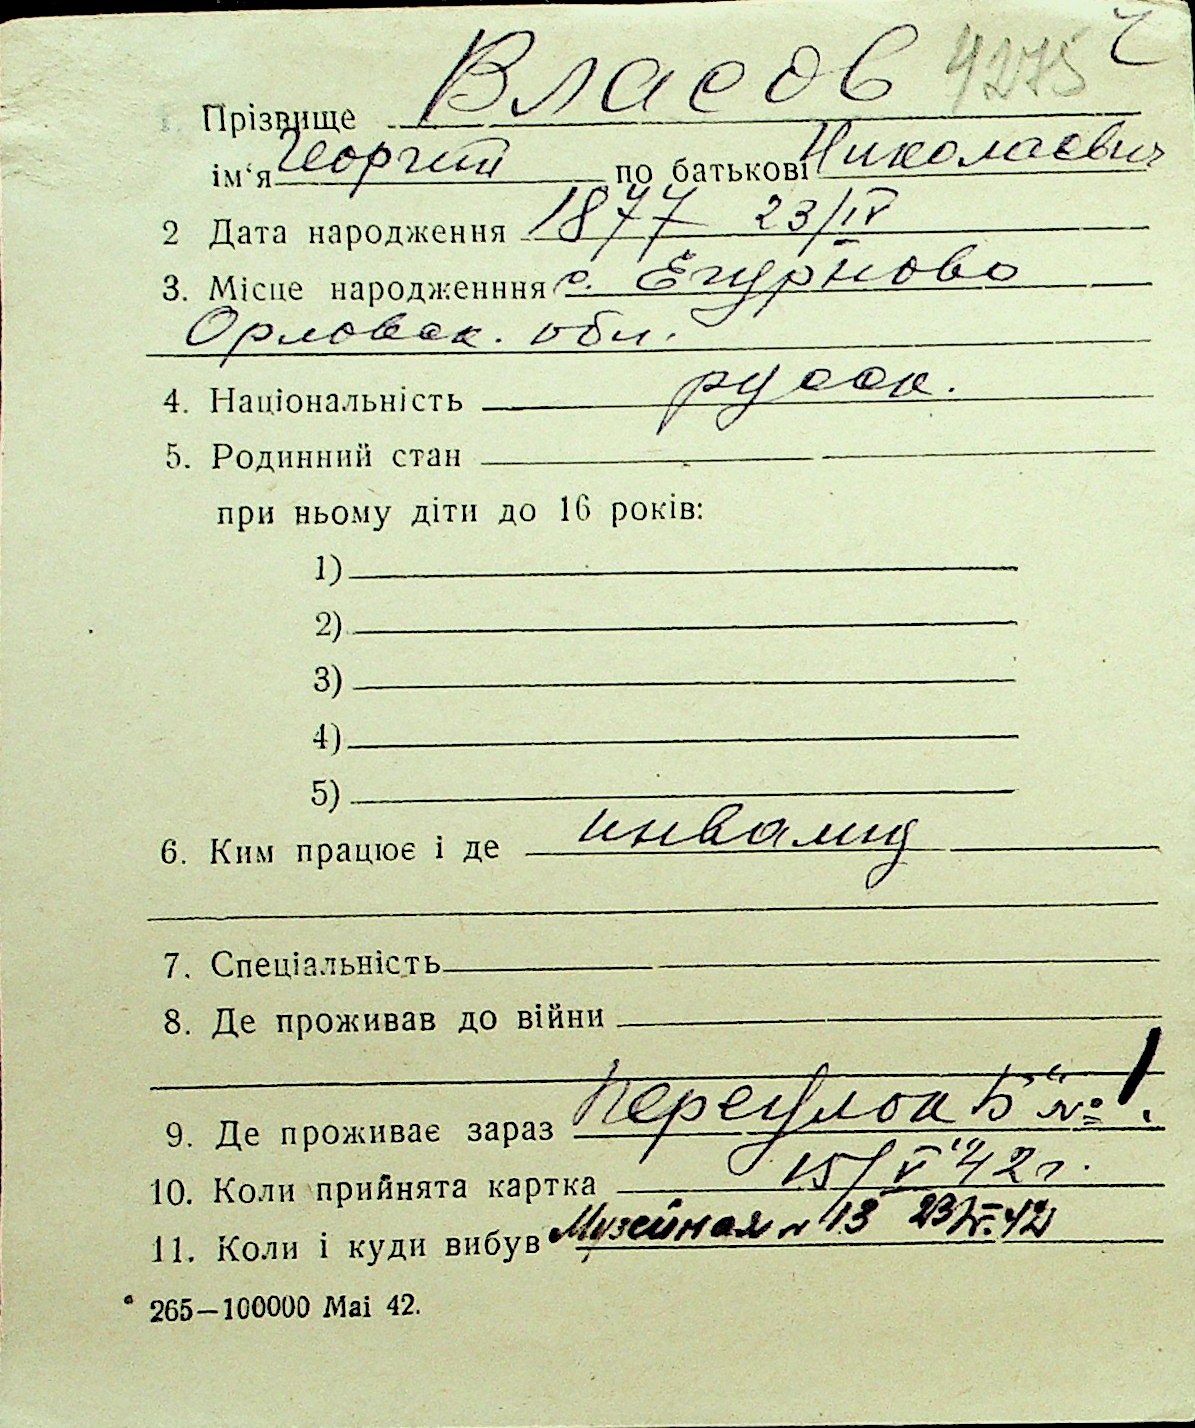 Прізвище Власов 4275 Ч
ім'я Георгий по батькові Николаевич
2 Дата народження 1877 23/IV
3. Місце народженння с. Егурново
Орловск. обл.
4. Національність русск.
5. Родинний стан
при ньому діти до 16 років:
1)
2)
3)
4)
5)
6. Ким працює і де инвалид
7. Спеціальність
8. Де проживав до війни
9. Де проживає зараз Переулок Б" № 1.
10. Коли прийнята картка 15/V 42 г.
11. Коли і куди вибув Музейная № 13
265—100000 Mai 42.